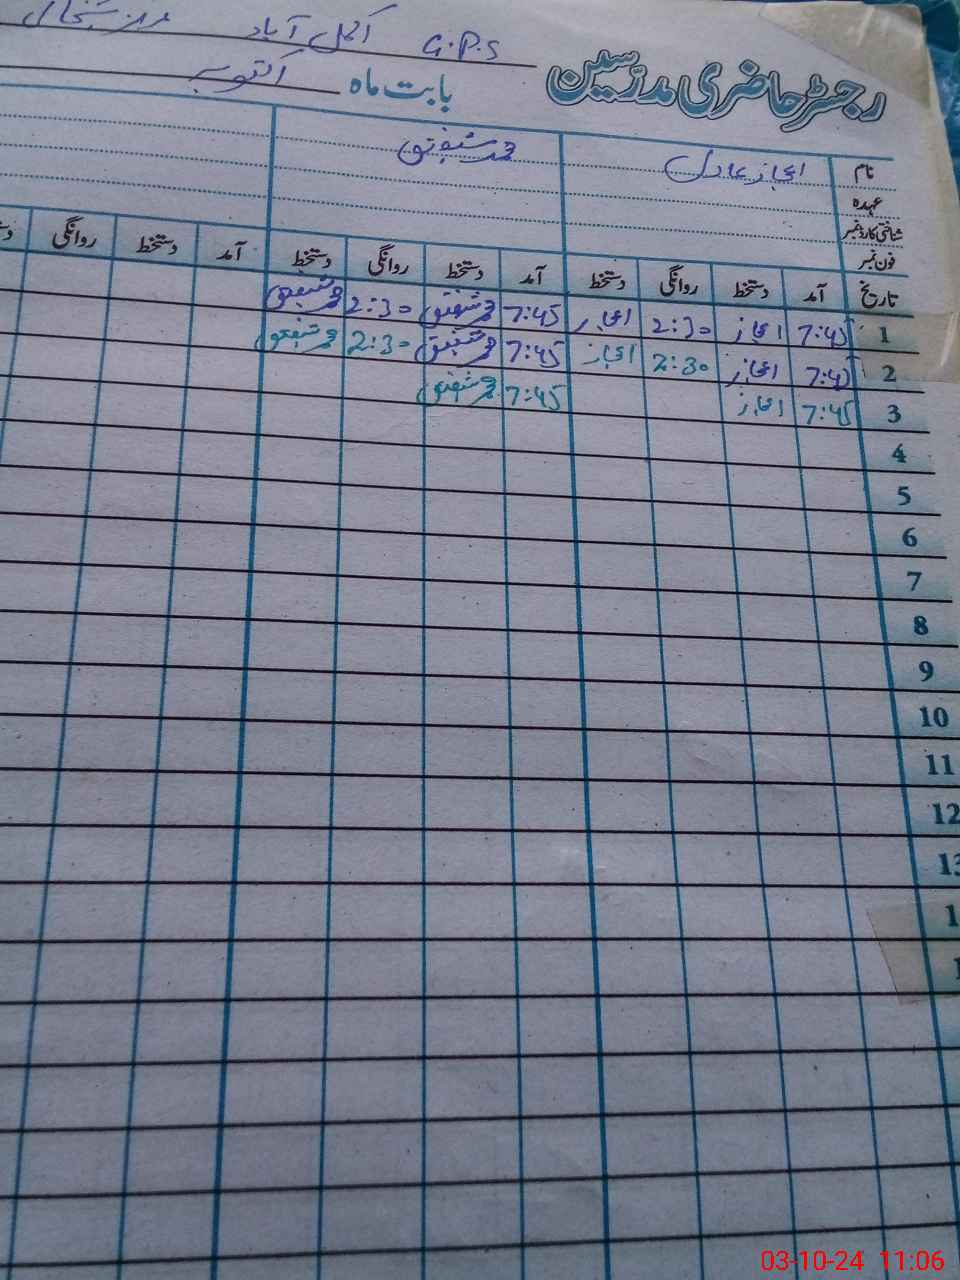 G.P.S اکمل آباد
رجسٹر حاضری مدرسین
بابت ماہ اکتوبر
نام اعجاز عادل محمد شفیق
عہدہ
شناختی کارڈ نمبر
فون نمبر
تاریخ آمد دستخط روانگی دستخط آمد دستخط روانگی دستخط آمد دستخط روانگی
1 7:45 اعجاز 2:30 اعجاز 7:45 محمد شفیق 2:30 محمد شفیق
2 7:45 اعجاز 2:30 اعجاز 7:45 محمد شفیق 2:30 محمد شفیق
3 7:45 اعجاز 7:45 محمد شفیق
4
5
6
7
8
9
10
11
12
13
03-10-24 11:06